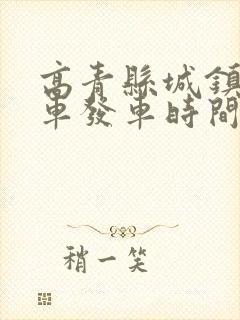 高青縣城鎮
車發車時間
稍一笑